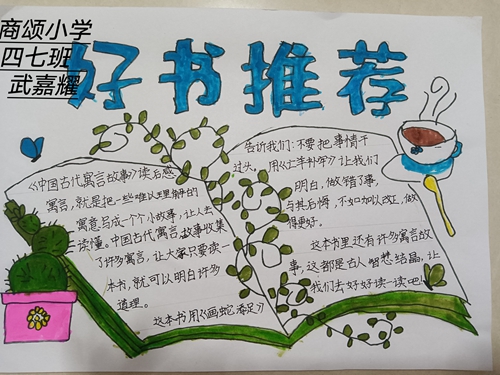 商颂小学
四七班
武嘉耀
好书推荐
《中国古代寓言故事》读后感
寓言,就是把一些难以理解的
寓意写成一个个小故事,让人去
读懂。中国古代寓言故事收集
了许多寓言,让大家只要读一
本书,就可以明白许多
道理。
这本书用《画蛇添足》
告诉我们:不要把事情干
过头。用《亡羊补牢》让我们
明白,做错了事,
与其后悔,不如加以改正,做
得更好。
这本书里还有许多寓言故
事,这都是古人智慧结晶,让
我们去好好读一读吧!